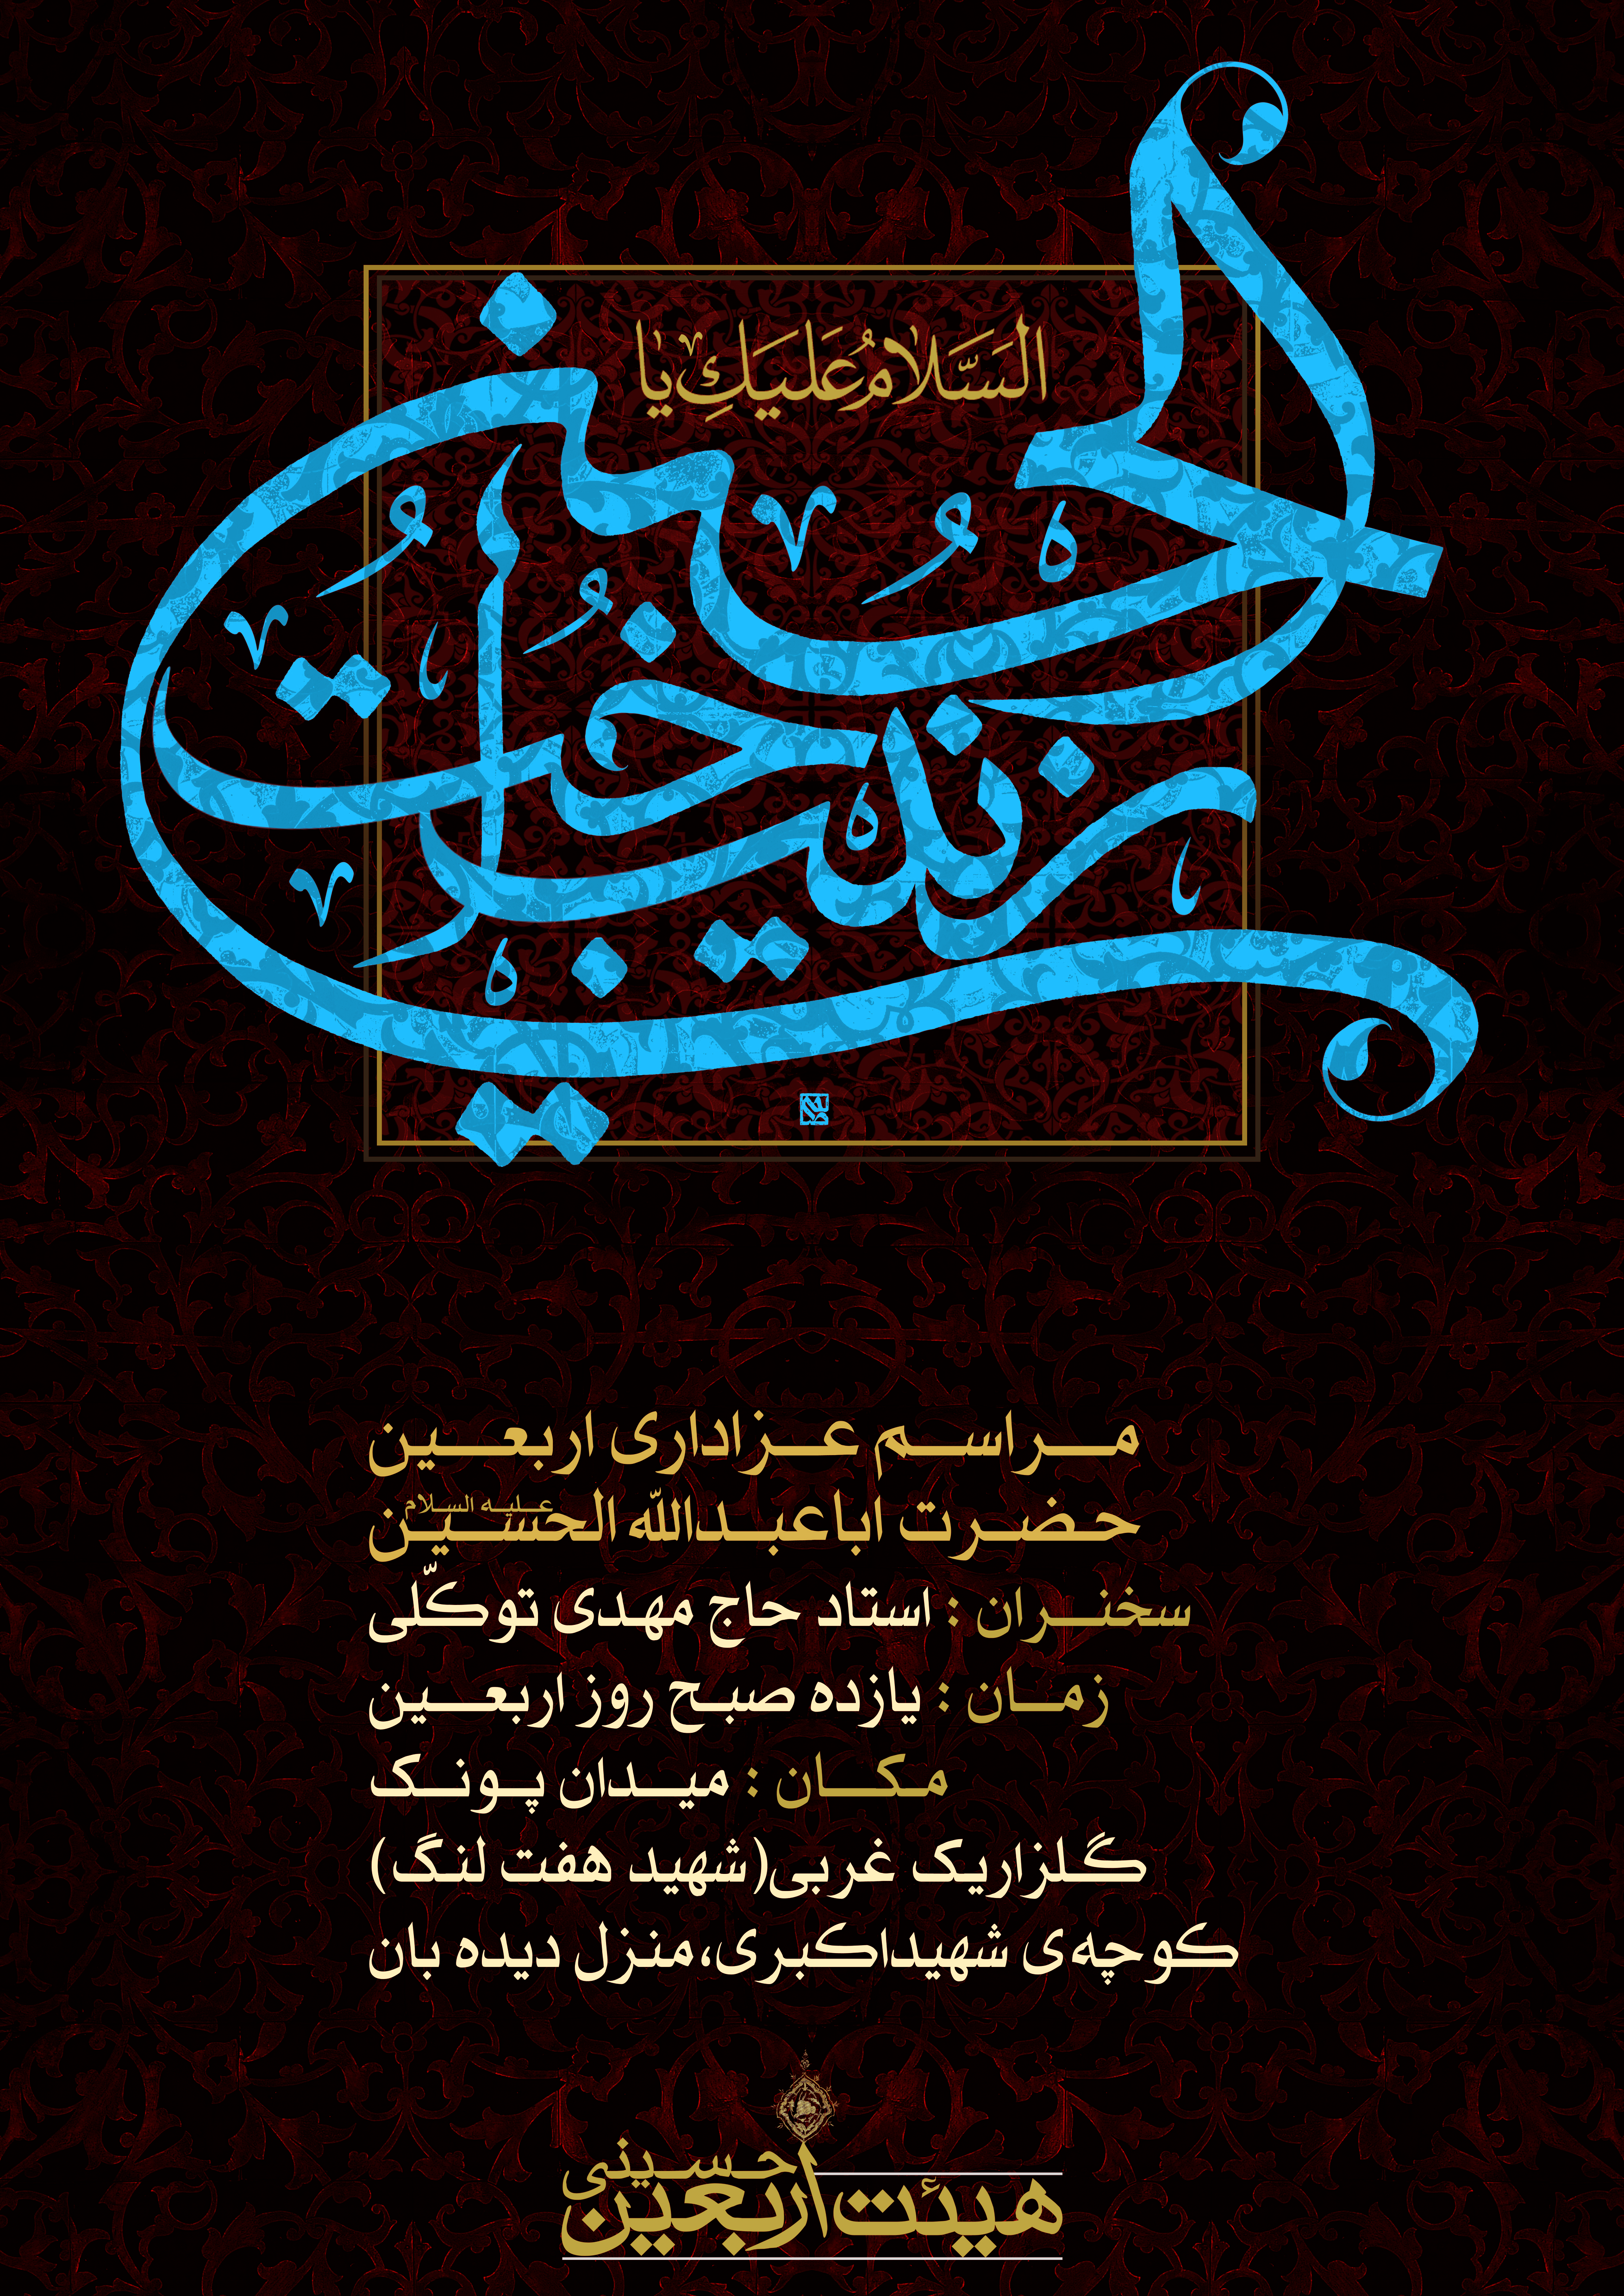 السَّلامُ عَلَيكِ يا
زینب اخت الحسین
مراسم عزاداری اربعین
حضرت اباعبدالله الحسین علیه السلام
سخنران : استاد حاج مهدی توکّلی
زمان : یازده صبح روز اربعین
مکان : میدان پونک
گلزاریک غربی(شهید هفت لنگ)
کوچه‌ی شهیداکبری،منزل دیده بان
هیئت اربعین حسینی